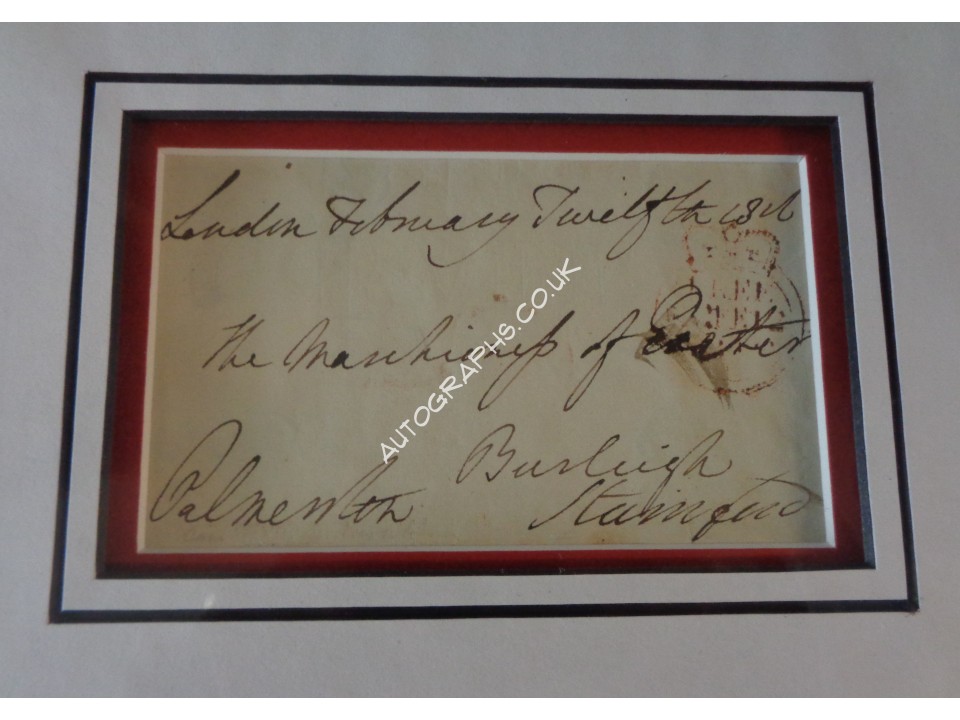 London February Twelfth
The Marchioness of Exeter
Burleigh
Palmerston Stamford
FREE
AUTOGRAPHS.CO.UK